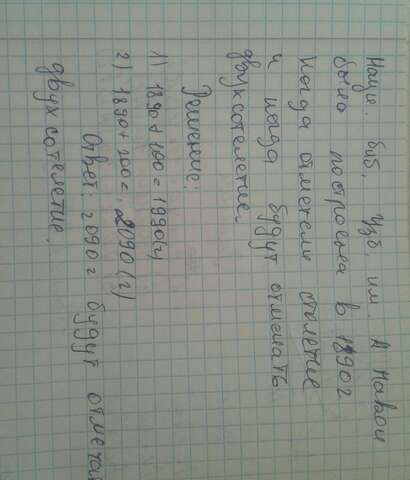 Нацио. биб. Узб. им. А Навои
было построена в 1890г
Когда отметели столетие
и когда будут отмечать
двухсотелетие.
Решение:
1) 1890+100=1990(г)
2) 1890+200=2090(г)
Ответ: 2090г будут отмечат
двухсотелетие.